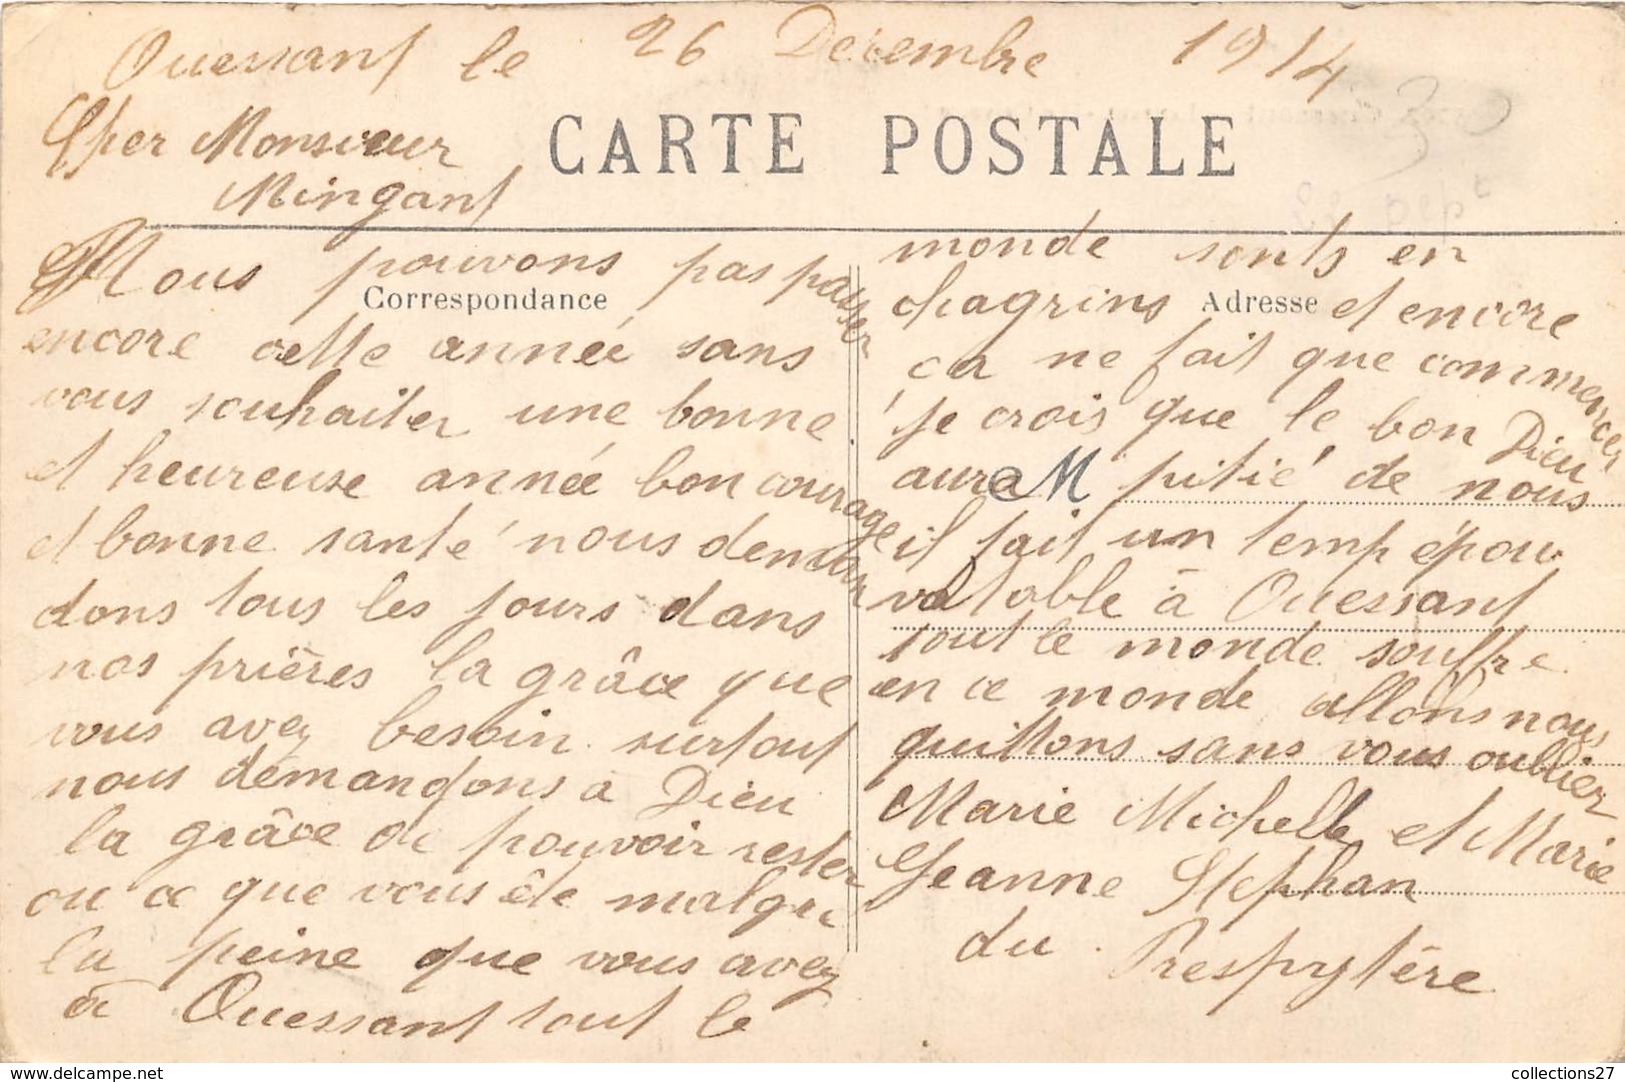 Ouessant le 26 Decembre 1914
Cher Monsieur
CARTE POSTALE
Mingant
Nous pouvons pas passer
Correspondance
encore cette année sans
vous souhaiter une bonne
et heureuse année bon courage
et bonne santé nous deman
dons tous les jours dans
nos prières la grâce que
vous avez besoin surtout
nous demandons à Dieu
la grâce de pouvoir rester
ou ce que vous éte malgré
la peine que vous avez
à Ouessant tout le
monde sonts en
chagrins et encore
Adresse
ca ne fait que commencer
je crois que le bon Dieu
aura M pitié de nous
il fait un temp épou
vatable à Ouessant
tout le monde souffre
en ce monde allons nous
quittons sans vous oublier
Marie Michelle et Marie
Jeanne Stephan
du Prespytère
collections27